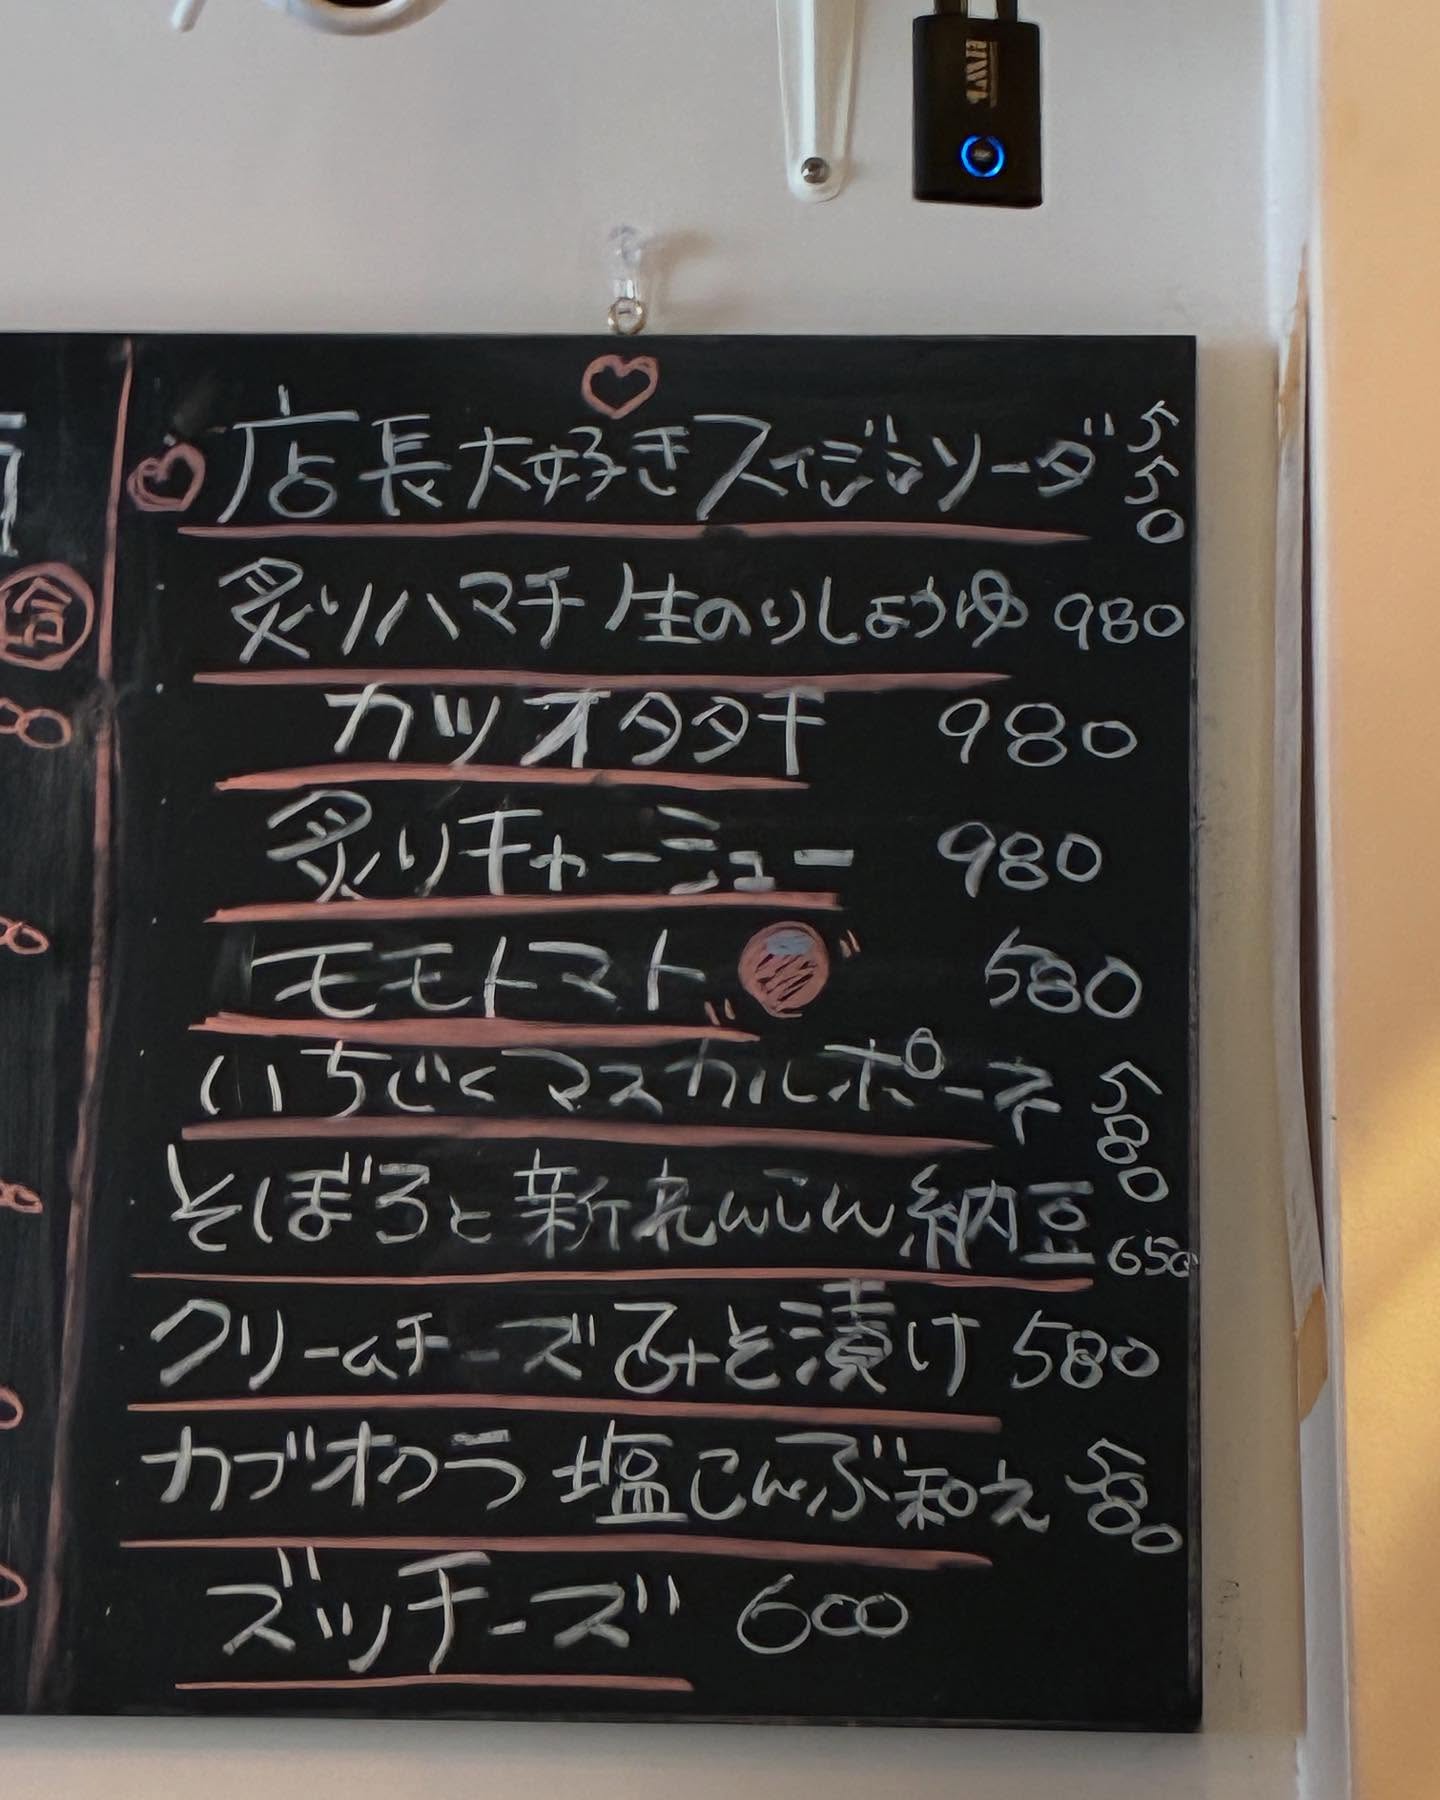 店長大好きスイジンソーダ 550
炙りハマチ 生のりしょうゆ 980
カツオタタキ 980
炙りチャーシュー 980
モモトマト 580
いちじくマスカルポーネ 580
そぼろと新れんこん納豆 650
クリームチーズみそ漬け 580
カブオクラ 塩こんぶ和え 580
ズッチーズ 600